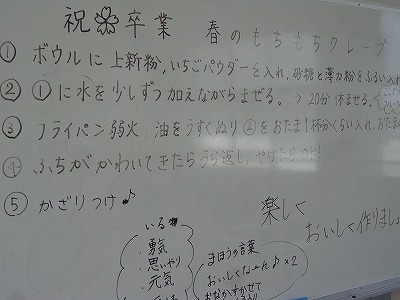 祝 卒業 春のもちもちクレープ
① ボウルに上新粉,いちごパウダーを入れ,砂糖と薄力粉をふるい入れ
② ①に水を少しずつ加えながらまぜる。→20分休ませる。
③ フライパン弱火 油をうすくぬり②をおたま1杯分くらい入れ,おたま
④ ふちがかわいてきたらうら返し,やけたら
⑤ かざりつけ♪
楽しく
おいしく作りましょ
いる物
・勇気
・思いやり
・元気
まほうの言葉
おいしくなーれ♪×2
おなかすかせて